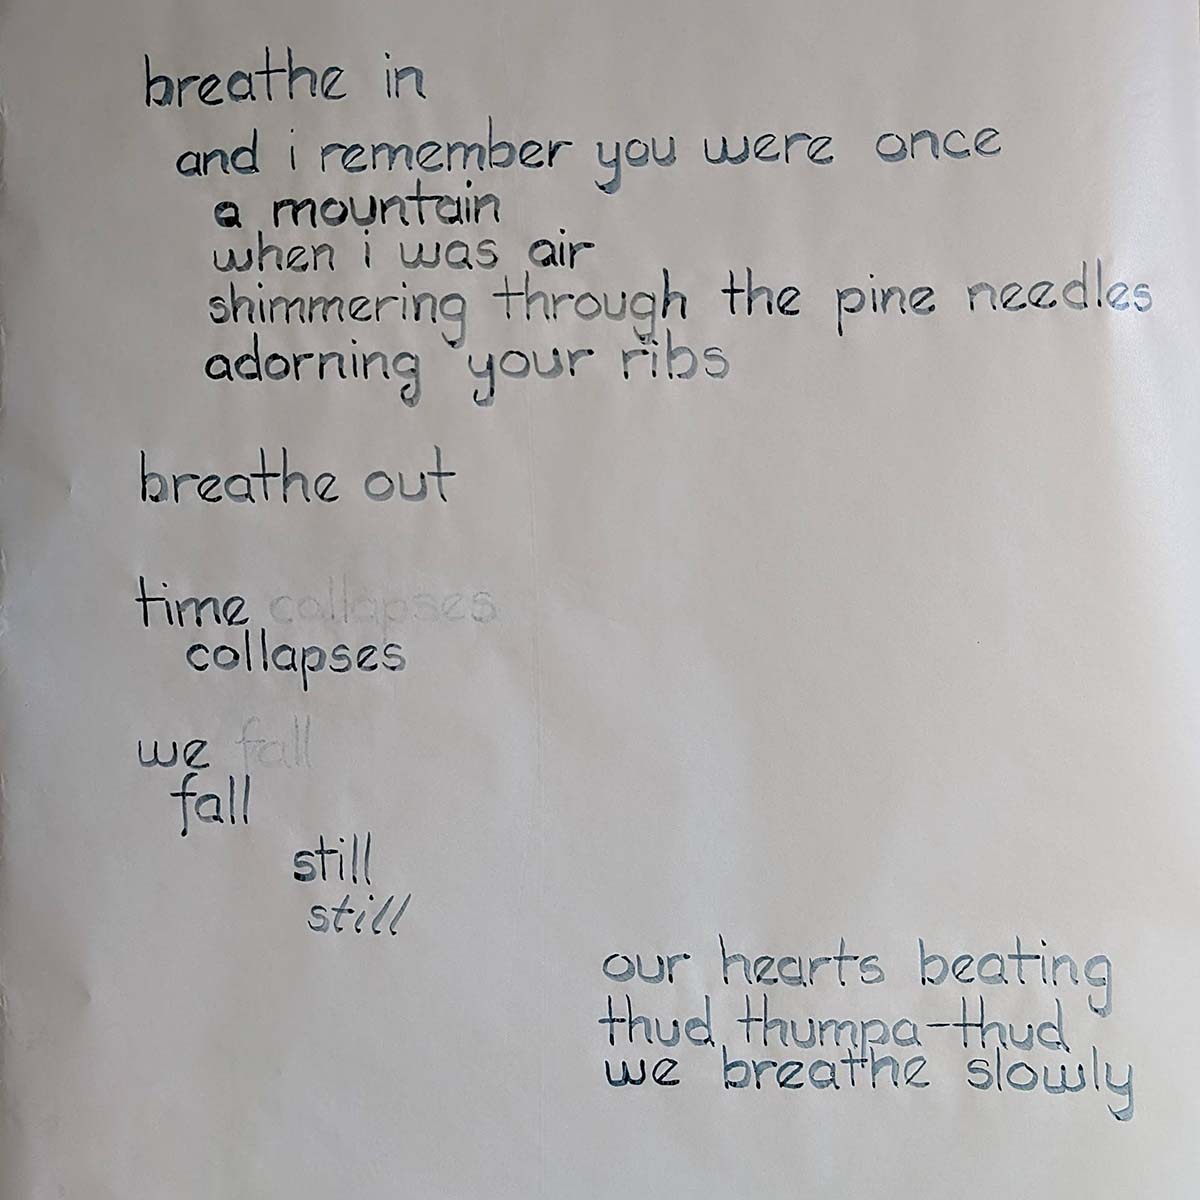 breathe in
and i remember you were once
a mountain
when i was air
shimmering through the pine needles
adorning your ribs
breathe out
time collapses
collapses
we fall
fall
still
still
our hearts beating
thud thumpa-thud
we breathe slowly